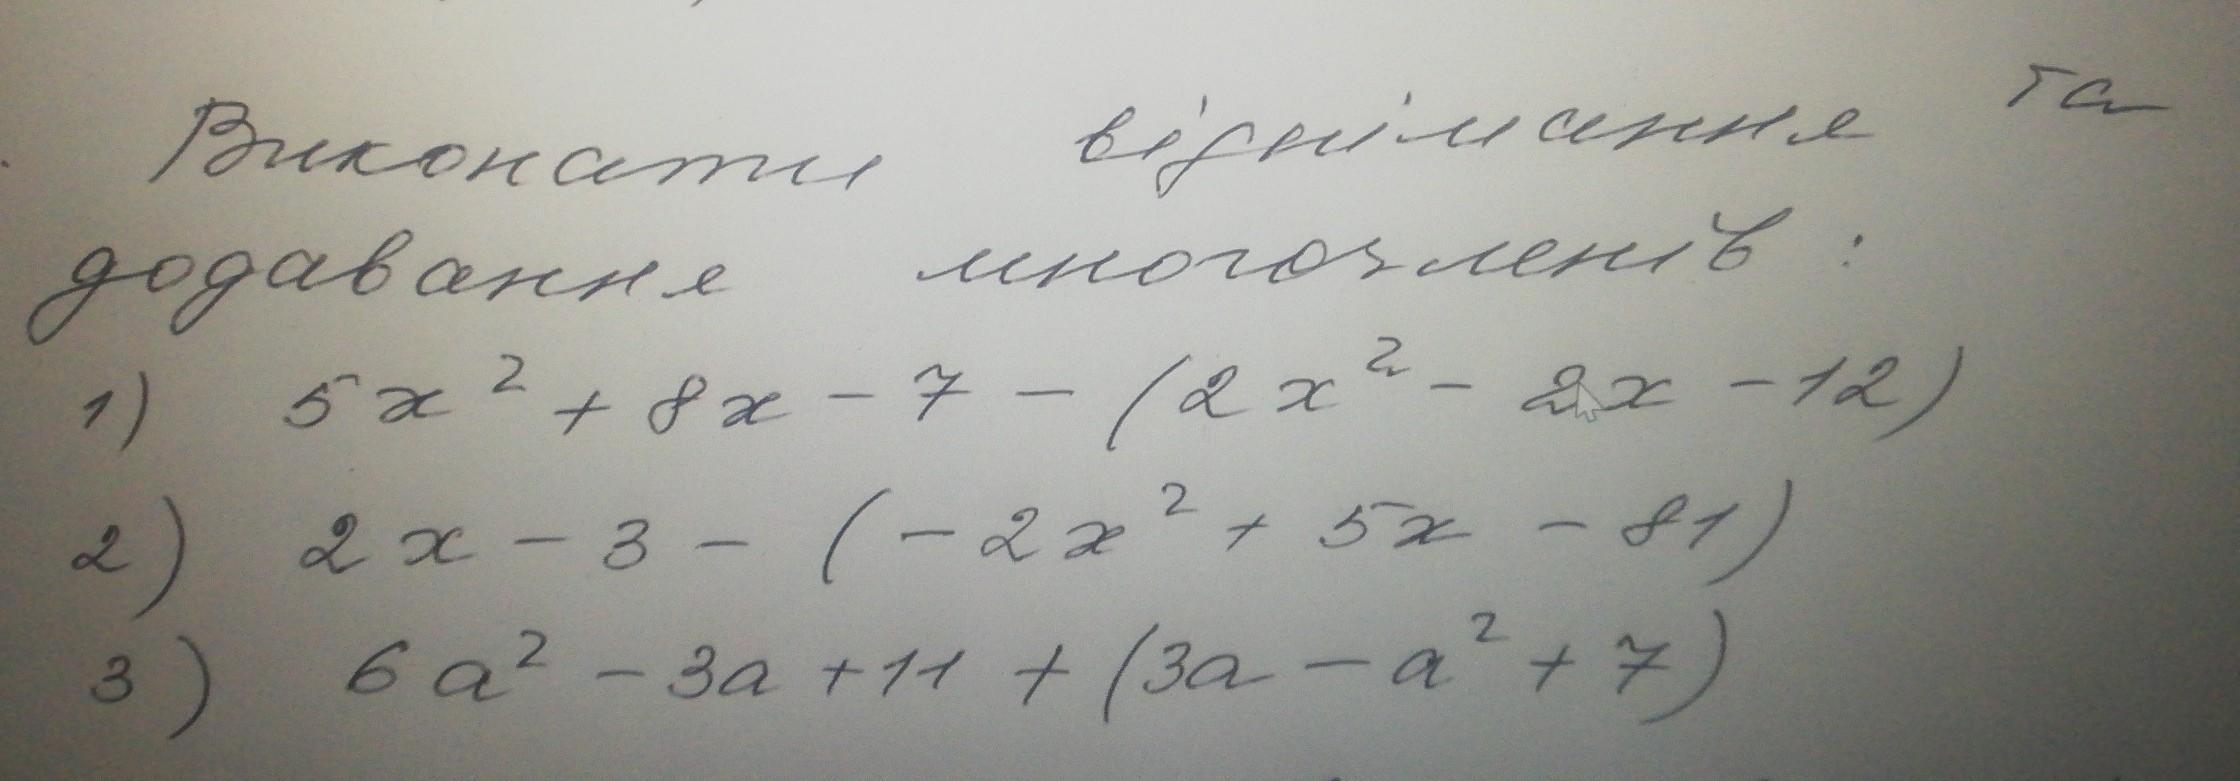 Виконати віднімання та
додавання многочленів:
1) 5x² + 8x - 7 - (2x² - 2x - 12)
2) 2x - 3 - (-2x² + 5x - 81)
3) 6a² - 3a + 11 + (3a - a² + 7)